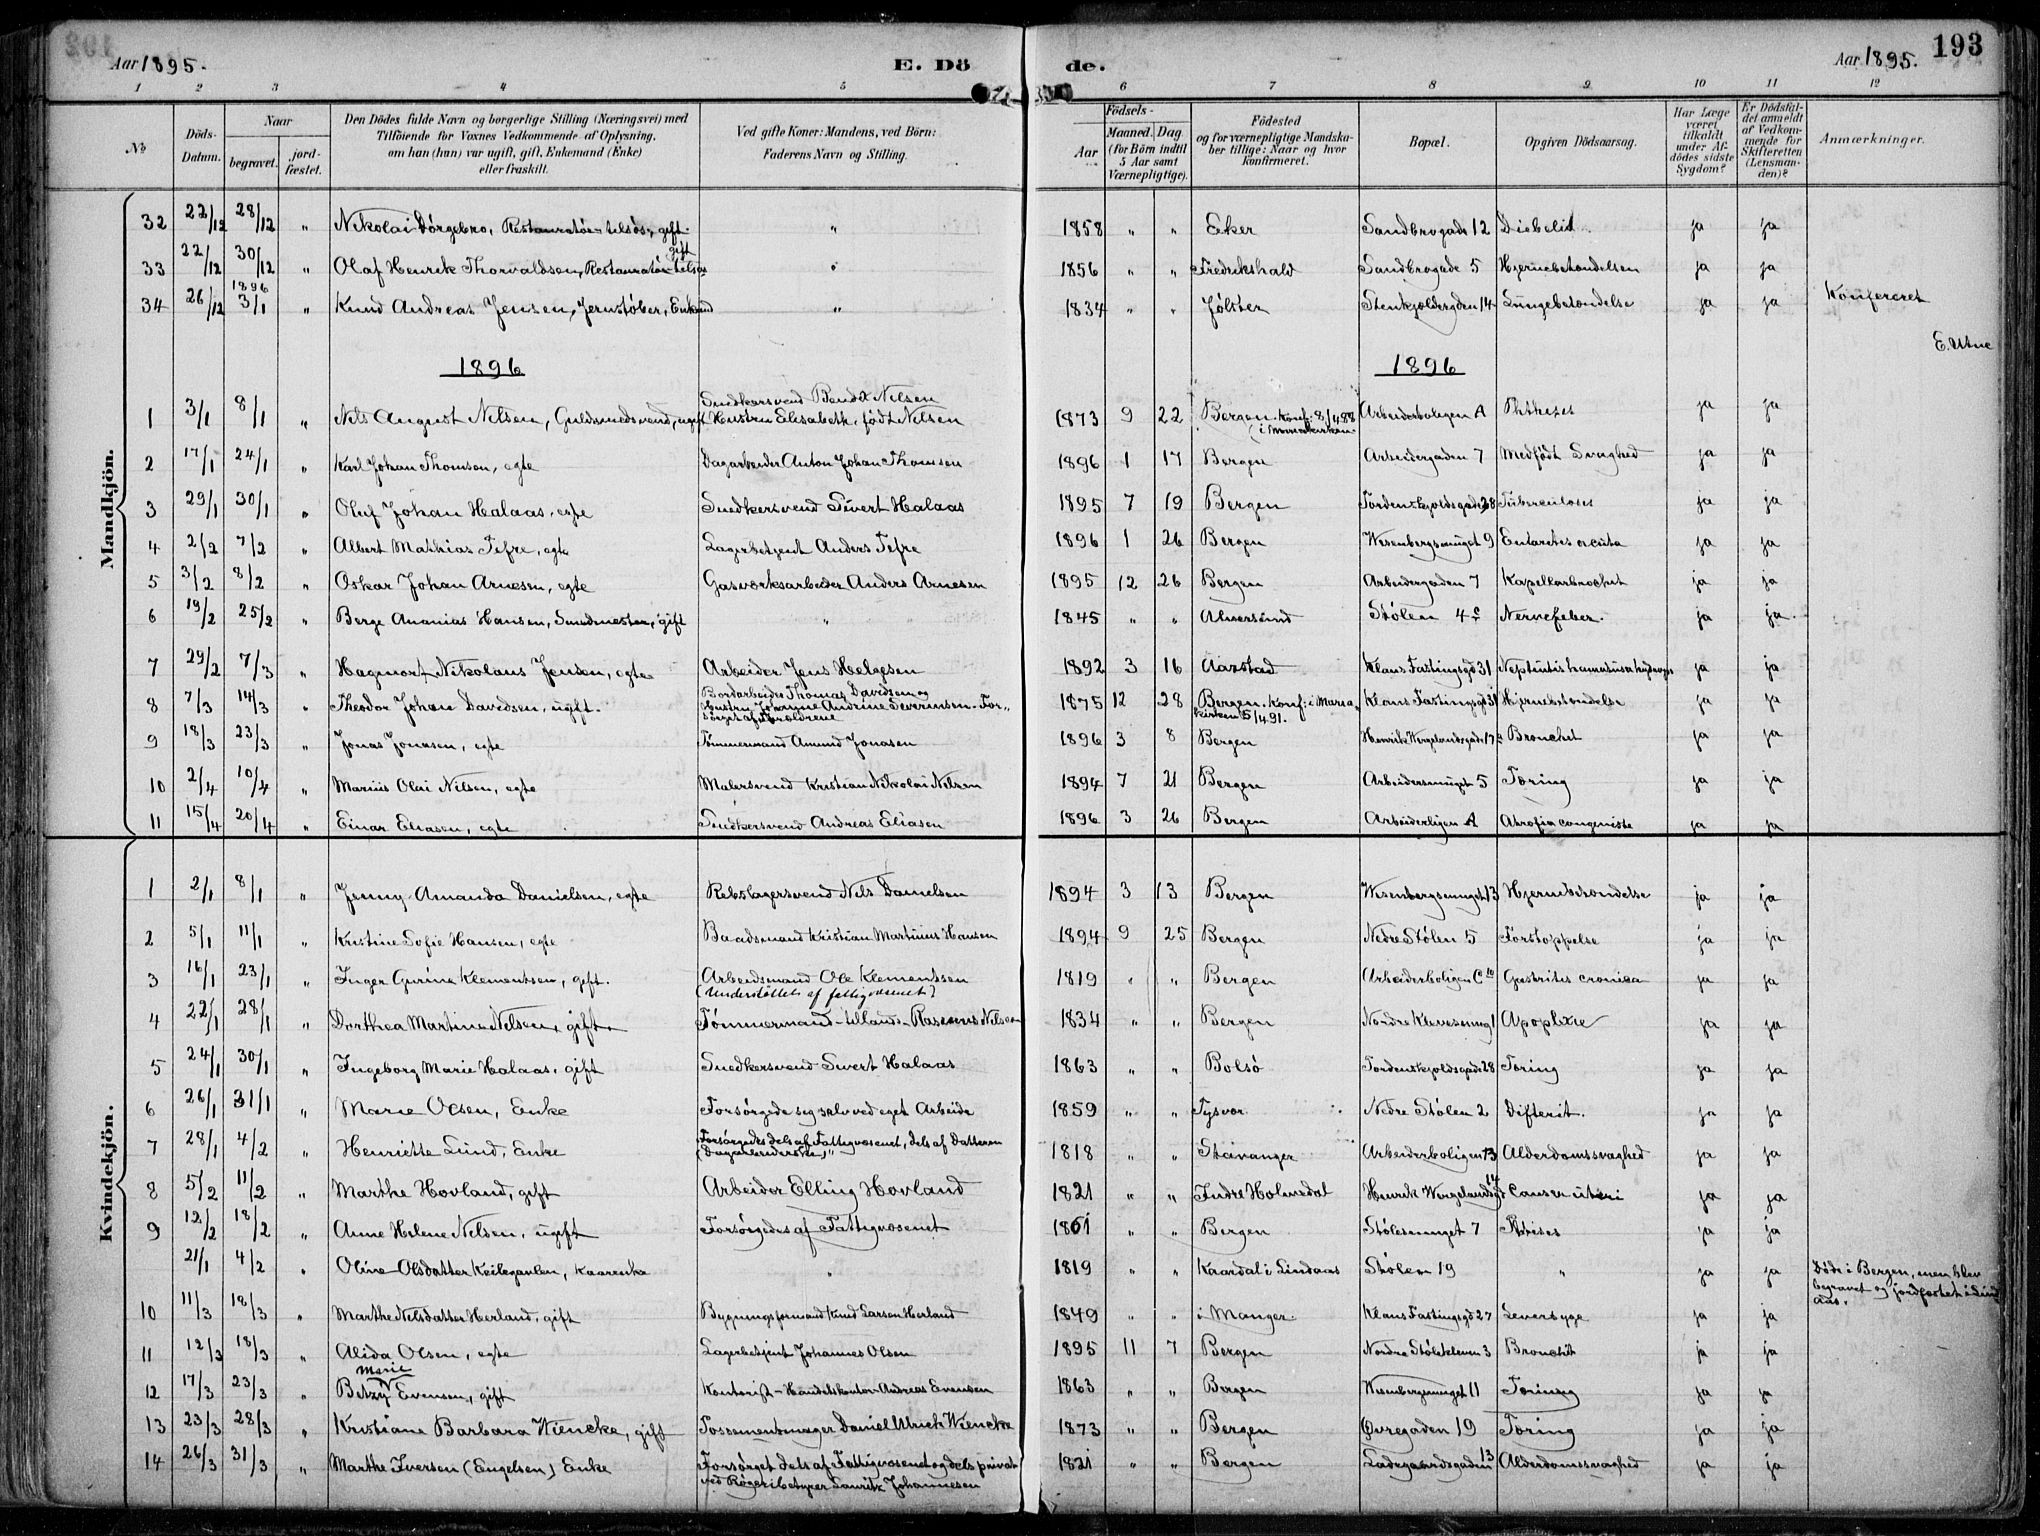 Aar 1895.
E. Dö de.
Aar 1895.
193
1 2 3 4 5 6 7 8 9 10 11 12
No
Döds-Datum.
Naar begravet. jordfæstet.
Den Dödes fulde Navn og borgerlige Stilling (Næringsvei) med Tilföiende for Voxnes Vedkommende af Oplysning, om han (hun) var ugift, gift, Enkemand (Enke) eller fraskilt.
Ved gifte Koner: Mandens, ved Börn: Faderens Navn og Stilling.
Födsels-
Aar
Maaned. Dag (for Börn indtil 5 Aar samt Værnepligtige).
Födested og for værnepligtige Mandskaber tillige: Naar og hvor konfirmeret.
Bopæl.
Opgiven Dödsaarsag.
Har Læge været tilkaldt under Afdödes sidste Sygdom?
Er Dödsfaldet anmeldt af Vedkommende for Skifteretten (Lensmanden)?
Anmærkninger.
Mandkjön.
32 22/12 28/12 " Nikolai Dørgebro, Restauratør tilsøs, gift. " 1858 " " Eker Sandbrogade 12 Diabelit ja ja
33 22/12 30/12 " Olaf Henrik Thorvaldsen, Restauratør tilsøs gift " 1856 " " Fredrikshald Sandbrogade 5 Hjernebetændelsen ja ja
34 26/12 1896 3/1 " Knud Andreas Jensen, Jernstøber, Enkemd " 1834 " " Jølster Stenkjeldergden 14 Lungebetændelse ja ja Konfereret
E. Utne
1896
1896
1 3/1 8/1 " Nils August Nilsen, Guldsmedsvend, ugift Snedkersvend Bendix Nilsen Hustru Elisabeth, født Nilsen 1873 9 22 Bergen. Konf: 8/4 88 i Mariakirken Arbeiderboligen A Phthisis ja ja
2 17/1 24/1 " Karl Johan Thomsen, egte Dagarbeider Anton Johan Thomsen 1896 1 17 Bergen Arbeidergaden 7 Medfødt Svaghed ja ja
3 29/1 30/1 " Oluf Johan Halaas, egte Snedkersvend Sivert Halaas 1895 7 19 Bergen Tordenskjoldsgade 28 Tuberculoses ja ja
4 2/2 7/2 " Albert Mathias Tefre, egte Lagerbetjent Anders Tefre 1896 1 26 Bergen Wesenbergsmuget 9 Entaritis acuta ja ja
5 3/2 8/2 " Oskar Johan Arnesen, egte Gasværksarbeider Anders Arnesen 1895 12 26 Bergen Arbeidergaden 7 Kapellarbrochit ja ja
6 19/2 25/2 " Berge Ananias Hansen, Smedmester, gift " 1845 " " Alversund Stølen 4c Nervefeber. ja ja
7 29/2 7/3 " Hagmort Nikolaus Jensen, egte Arbeider Jens Helgesen 1892 3 16 Aarstad Klaus Fastingsgd 31 ja ja
8 7/3 14/3 " Theodor Johan Davidsen, ugift. Bordarbeider Thomas Davidsen og Hustru Johanne Andrine Severinsen. Forsørget af Forældrene 1875 12 28 Bergen. Konf: i Mariakirken 5/4 91. Klaus Fastingsgd 31 Hjernebetændelse ja ja
9 18/3 23/3 " Jonas Jonasen, egte Tømmermand Amund Jonasen 1896 3 8 Bergen Henrik Wergelandsgade 17 Bronchit ja ja
10 2/4 10/4 " Marius Olai Nilsen, egte Malersvend Kristian Nikolai Nilsen 1894 7 21 Bergen Arbeidersmuget 5 Tæring ja ja
11 15/4 20/4 " Einar Eliasen, egte Snedkersvend Andreas Eliasen 1896 3 26 Bergen Arbeiderligen A Atrofia congenista ja ja
Kvindekjön.
1 2/1 8/1 " Jenny Amanda Danielsen, egte Rebslagersvend Nils Danielsen 1894 3 13 Bergen Wesenbergsmuget 13 Hjernebetændelse ja ja
2 5/1 11/1 " Kristine Sofie Hansen, egte Baadsmand Kristian Martinius Hansen 1894 9 25 Bergen Nedre Stølen 5 Forstoppelse ja ja
3 16/1 23/1 " Inger Gurine Klementsen, gift. Arbeidsmand Ole Klementssen (Understøttet af fattigvæsenet) 1819 " " Bergen Arbeiderboligen C 10 Gastritis cronica ja ja
4 22/1 28/1 " Dorthea Martine Nilsen, gift. Tømmermand tillands Rasmus Nilsen 1834 " " Bergen Nordre Klevesmug 1 Apoplixie ja ja
5 24/1 30/1 " Ingeborg Marie Halaas, gift Snedkersvend Sivert Halaas 1863 " " Bolsø Tordenskjoldsgade 28 Tæring ja ja
6 26/1 31/1 " Marie Olsen, Enke Forsørgede sig selv ved eget Arbeide 1859 " " Tysvær. Nedre Stølen 2 Difterit. ja ja
7 28/1 4/2 " Henriette Lund, Enke Forsørgedes dels af Fattigvæsenet, dels af Datteren (Dagarbeiderske) 1818 " " Stavanger Arbeiderboligen 13 Alderdomssvaghed ja ja
8 5/2 11/2 " Marthe Hovland, gift Arbeider Elling Hovland 1821 " " Indre Holmedal Henrik Wergelandsgd 17 Canser uteri ja ja
9 12/2 18/2 " Anne Helene Nilsen, ugift Forsørgedes af Fattigvæsenet 1861 " " Bergen Stølesmuget 7 Phtisis ja ja
21/1 4/2 " Oline Olsdatter Keilegavlen, Kaarenke " 1819 " " Kaardal i Lindaas Stølen 19 " ja ja Døde i Bergen, men blev begravet og jordfæstet i Lindaas.
10 11/3 18/3 " Marthe Nilsdatter Herland, gift Bygningsformand Knud Larsen Herland 1849 " " i Manger. Klaus Fastingsgd 27 Leversyge ja ja
11 12/3 18/3 " Alida Olsen, egte Lagerbetjent Johannes Olsen 1895 11 7 Bergen Nordre Stølekleven 3 Bronchit ja ja
12 17/3 23/3 " Betzy Marie Evensen, gift Kontorist - Handelskontor Andreas Evensen 1863 " " Bergen Wesenbergsmuget 11 Tæring ja ja
13 23/3 28/3 " Kristiane Barbara Wiencke, gift Possementmager Daniel Ulrich Wiencke 1873 " " Bergen Øvregaden 19 Tæring ja ja
14 26/3 31/3 " Marthe Iversen (Engelsen) Enke Forsørget dels af Fattigvæsenet og dels privat ved Røgeribetyrer Lauritz Johannesen 1821 " " Bergen Ladegaardsgaden 13 Alderdomssvaghed ja ja